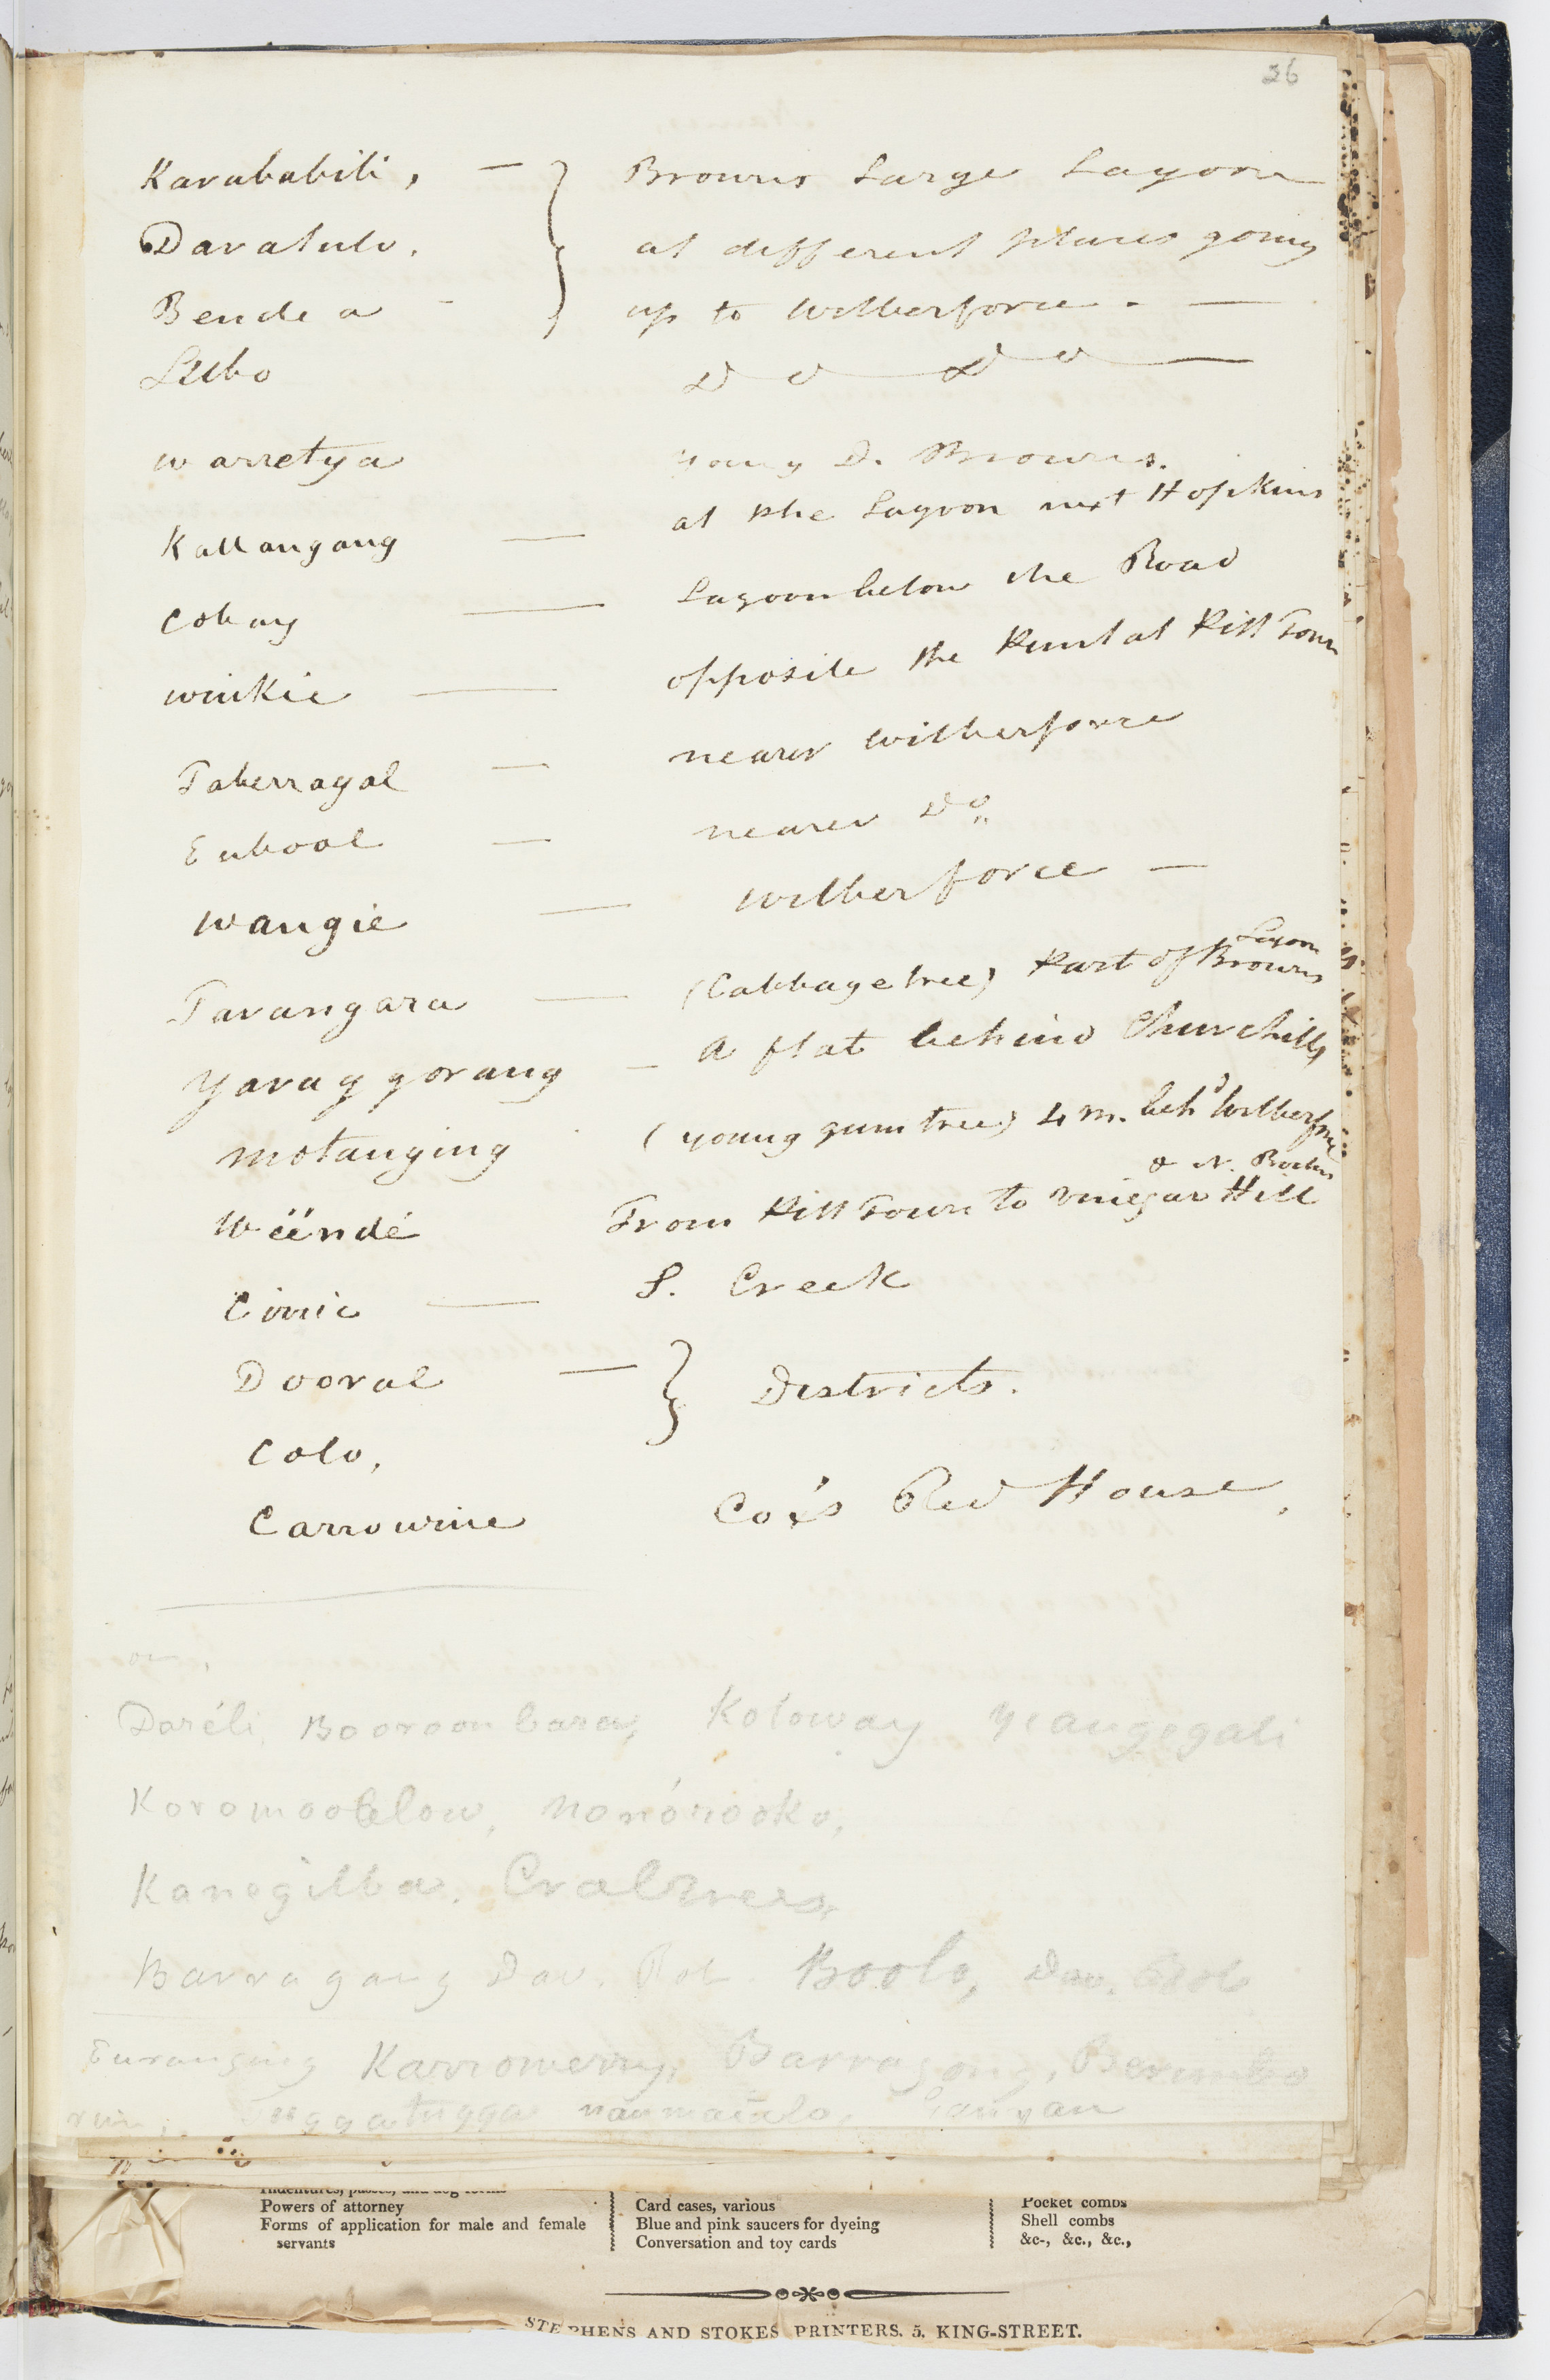 26
Karababili, — } Browns Large Lagoon
Daratulo. } at different places going
Bendea - } up to Wilberforce. —
Lilbo Do Do —
warretya young D. Browns.
Kallangang — at the Lagoon next Hopkins
Cobay — Lagoon below the Road
winkie — opposite the Punt at Pitt Town
Taberragal — nearer wilberforce
Eubool — nearer Do
wangie — Wilberforce —
Tarangara — (Cabbage tree) Part of Browns Lagoon
Yarag gorang — A flat behind Churchills
motanging (young gum tree) 4 m. behd Wilberforce
& N. Rocks
Wëëndé From Pitt Town to Vinegar Hill
Cinnic — S. Creek
Dooral — } Districts.
Colo, }
Carrowine Cox's Red House,
Daréli, Booroonbara, Koloway Yeangegali
Koromooblow, nonónooko,
Kanegilba. Crabtrees,
Barragang Dav. Rob. Boolo, Dav. Bob
Euranging Karromerry, Barragong, Berimbo
Tuggatugga
Powers of attorney
Forms of application for male and female
servants
Card cases, various
Blue and pink saucers for dyeing
Conversation and toy cards
Pocket combs
Shell combs
&c-, &c., &c.,
STEPHENS AND STOKES PRINTERS. 5, KING-STREET.